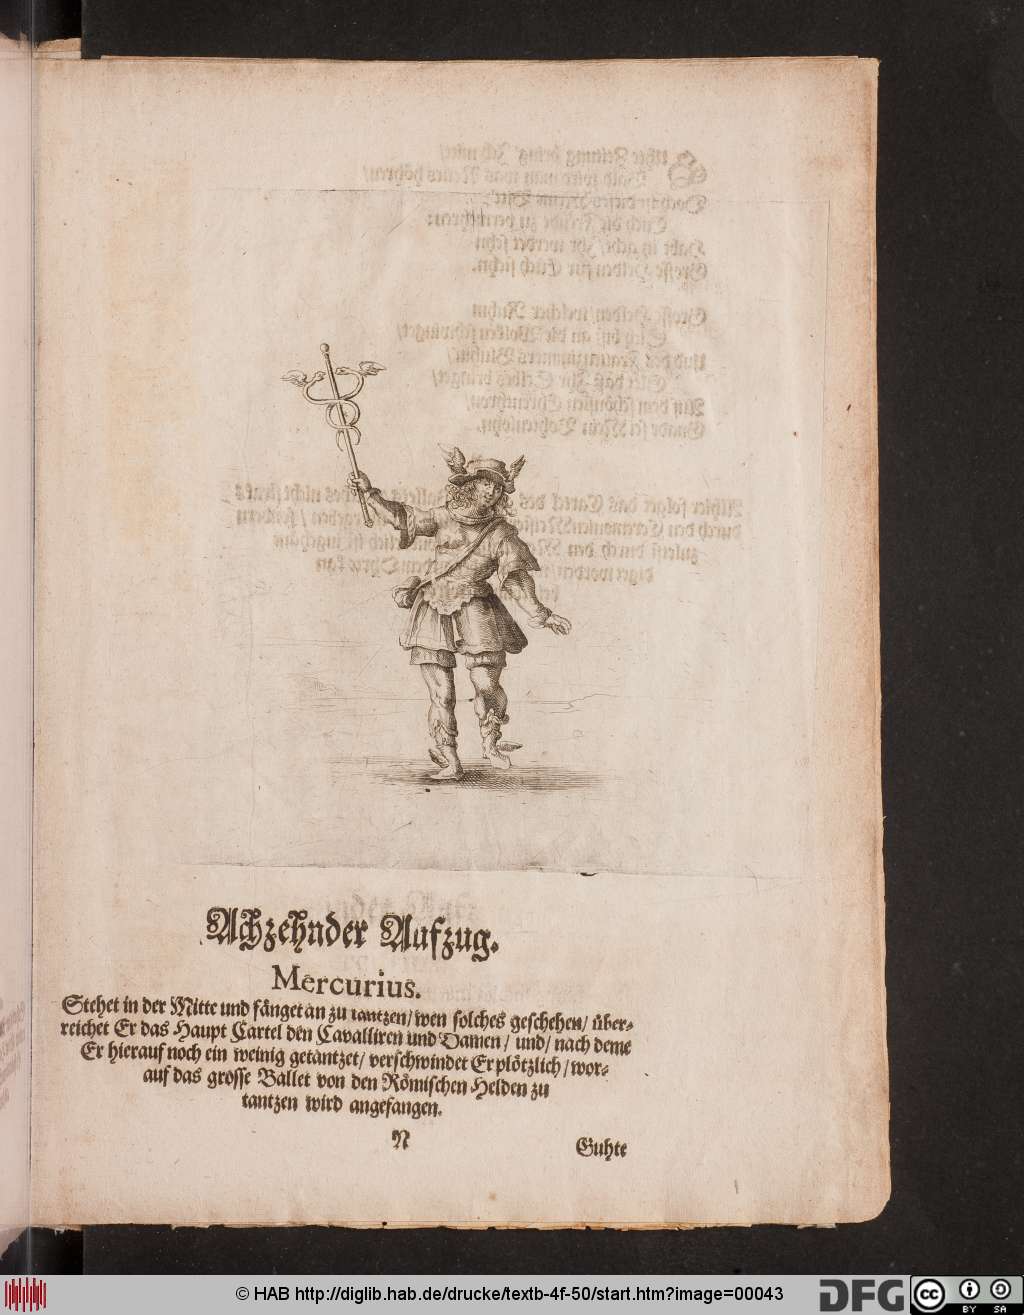 Achzehnder Aufzug.
Mercurius.
Stehet in der Mitte und fänget an zu tantzen/ wen solches geschehen/ über-
reichet Er das Haupt Cartel den Cavalliren und Damen/ und/ nach deme
Er hierauf noch ein weinig getantzet/ verschwindet Er plötzlich/ wor-
auf das grosse Ballet von den Römischen Helden zu
tantzen wird angefangen.
N
Guhte
© HAB http://diglib.hab.de/drucke/textb-4f-50/start.htm?image=00043
DFG
cc
BY
SA